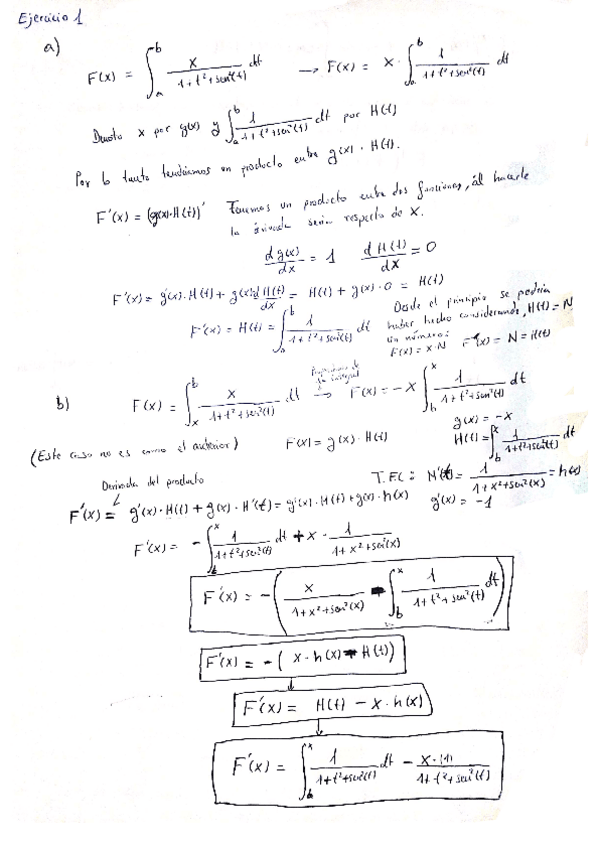 Ejercicio 1
a)
F(x) = ∫_a^b x/(1+t²+sen²(t)) dt → F(x) = x · ∫_a^b 1/(1+t²+sen²(t)) dt
Denoto x por g(x) y ∫_a^b 1/(1+t²+sen²(t)) dt por H(t)
Por lo tanto tendríamos un producto entre g(x) · H(t).
F'(x) = (g(x)·H(t))' Tenemos un producto entre dos funciones, al hacerle
la derivada sería respecto de x.
d g(x)/dx = 1 d H(t)/dx = 0
F'(x) = g'(x)·H(t) + g(x) dH(t)/dx = H(t) + g(x)·0 = H(t)
F'(x) = H(t) = ∫_a^b 1/(1+t²+sen²(t)) dt
Desde el principio se podría
haber hecho considerando, H(t) = N
un número:
F(x) = x·N F'(x) = N = H(t)
b) F(x) = ∫_x^b x/(1+t²+sen²(t)) dt → F(x) = -x ∫_b^x 1/(1+t²+sen²(t)) dt
Propiedades de la integral
g(x) = -x
(Este caso no es como el anterior) F(x) = g(x)·H(t) H(t) = ∫_b^x 1/(1+t²+sen²(t)) dt
Derivada del producto T.F.C: H'(t) = 1/(1+x²+sen²(x)) = h(x)
F'(x) = g'(x)·H(t) + g(x)·H'(t) = g'(x)·H(t) + g(x)·h(x) g'(x) = -1
F'(x) = -∫_b^x 1/(1+t²+sen²(t)) dt + x · 1/(1+x²+sen²(x))
F'(x) = -( x/(1+x²+sen²(x)) - ∫_b^x 1/(1+t²+sen²(t)) dt )
F'(x) = -( x·h(x) - H(t))
F'(x) = H(t) - x·h(x)
F'(x) = ∫_b^x 1/(1+t²+sen²(t)) dt - x·(1)/(1+t²+sen²(t))